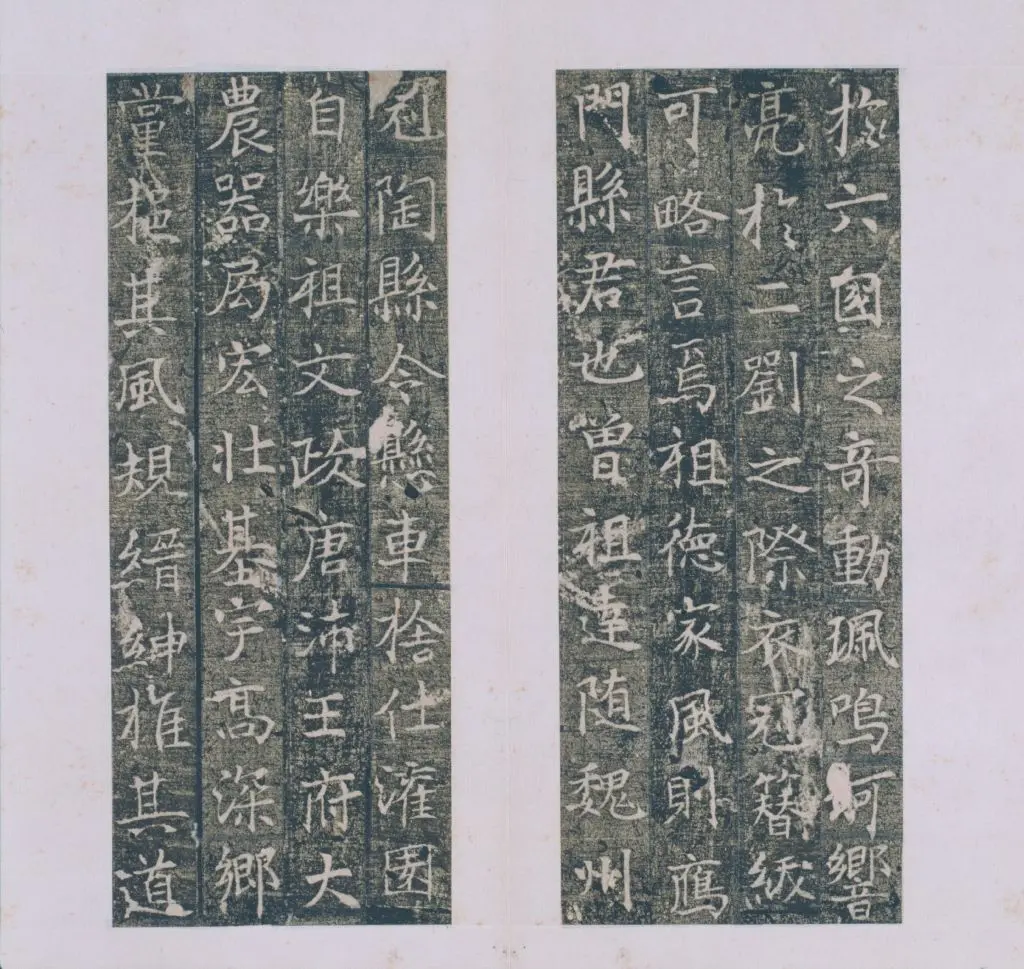 於六國之奇動珮鳴珂響
亮於二劉之際衣冠簪紱
可略言焉祖德家風則鴈
門縣君也曾祖達随魏州
冠陶縣令懸車捨仕灌園
自樂祖文政唐沛王府大
農器局宏壯基宇高深鄉
黨挹其風規縉紳推其道